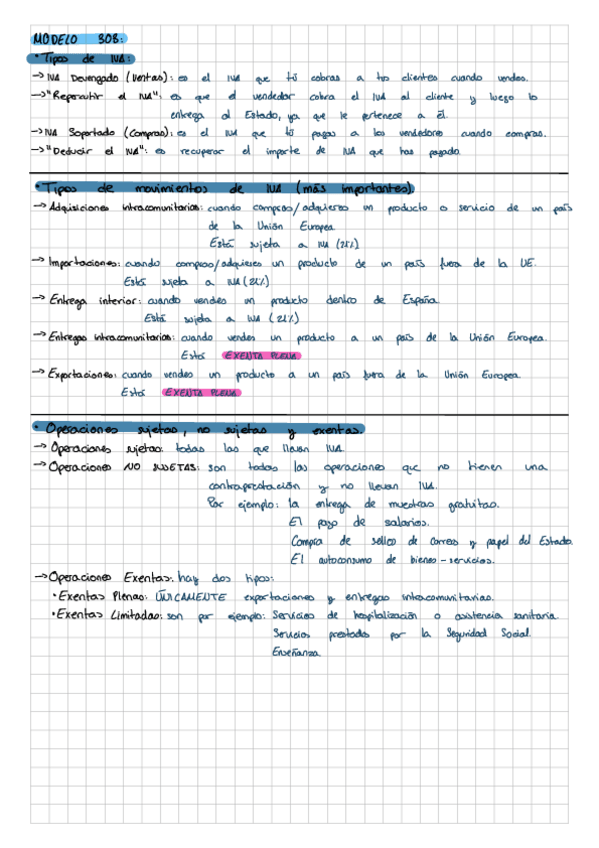 MODELO 303:
• Tipos de IVA:
→ IVA Devengado (Ventas): es el IVA que tú cobras a tus clientes cuando vendes.
→ "Repercutir el IVA": es que el vendedor cobra el IVA al cliente y luego lo
entrega al Estado, ya que le pertenece a él.
→ IVA Soportado (Compras): es el IVA que tú pagas a los vendedores cuando compras.
→ "Deducir el IVA": es recuperar el importe de IVA que has pagado.
• Tipos de movimientos de IVA (más importantes).
→ Adquisiciones intracomunitarias: cuando compras/adquieres un producto o servicio de un país
de la Unión Europea.
Está sujeta a IVA (21%)
→ Importaciones: cuando compras/adquieres un producto de un país fuera de la UE.
Está sujeta a IVA (21%)
→ Entrega interior: cuando vendes un producto dentro de España.
Está sujeta a IVA (21%)
→ Entregas intracomunitarias: cuando vendes un producto a un país de la Unión Europea.
Está EXENTA PLENA
→ Exportaciones: cuando vendes un producto a un país fuera de la Unión Europea.
Está EXENTA PLENA
• Operaciones sujetas, no sujetas y exentas.
→ Operaciones sujetas: todas las que llevan IVA.
→ Operaciones NO SUJETAS: son todas las operaciones que no tienen una
contraprestación y no llevan IVA.
Por ejemplo: la entrega de muestras gratuitas.
El pago de salarios.
Compra de sellos de correos y papel del Estado.
El autoconsumo de bienes - servicios.
→ Operaciones Exentas: hay dos tipos:
• Exentas Plenas: ÚNICAMENTE exportaciones y entregas intracomunitarias.
• Exentas Limitadas: son por ejemplo: Servicios de hospitalización o asistencia sanitaria.
Servicios prestados por la Seguridad Social.
Enseñanza.